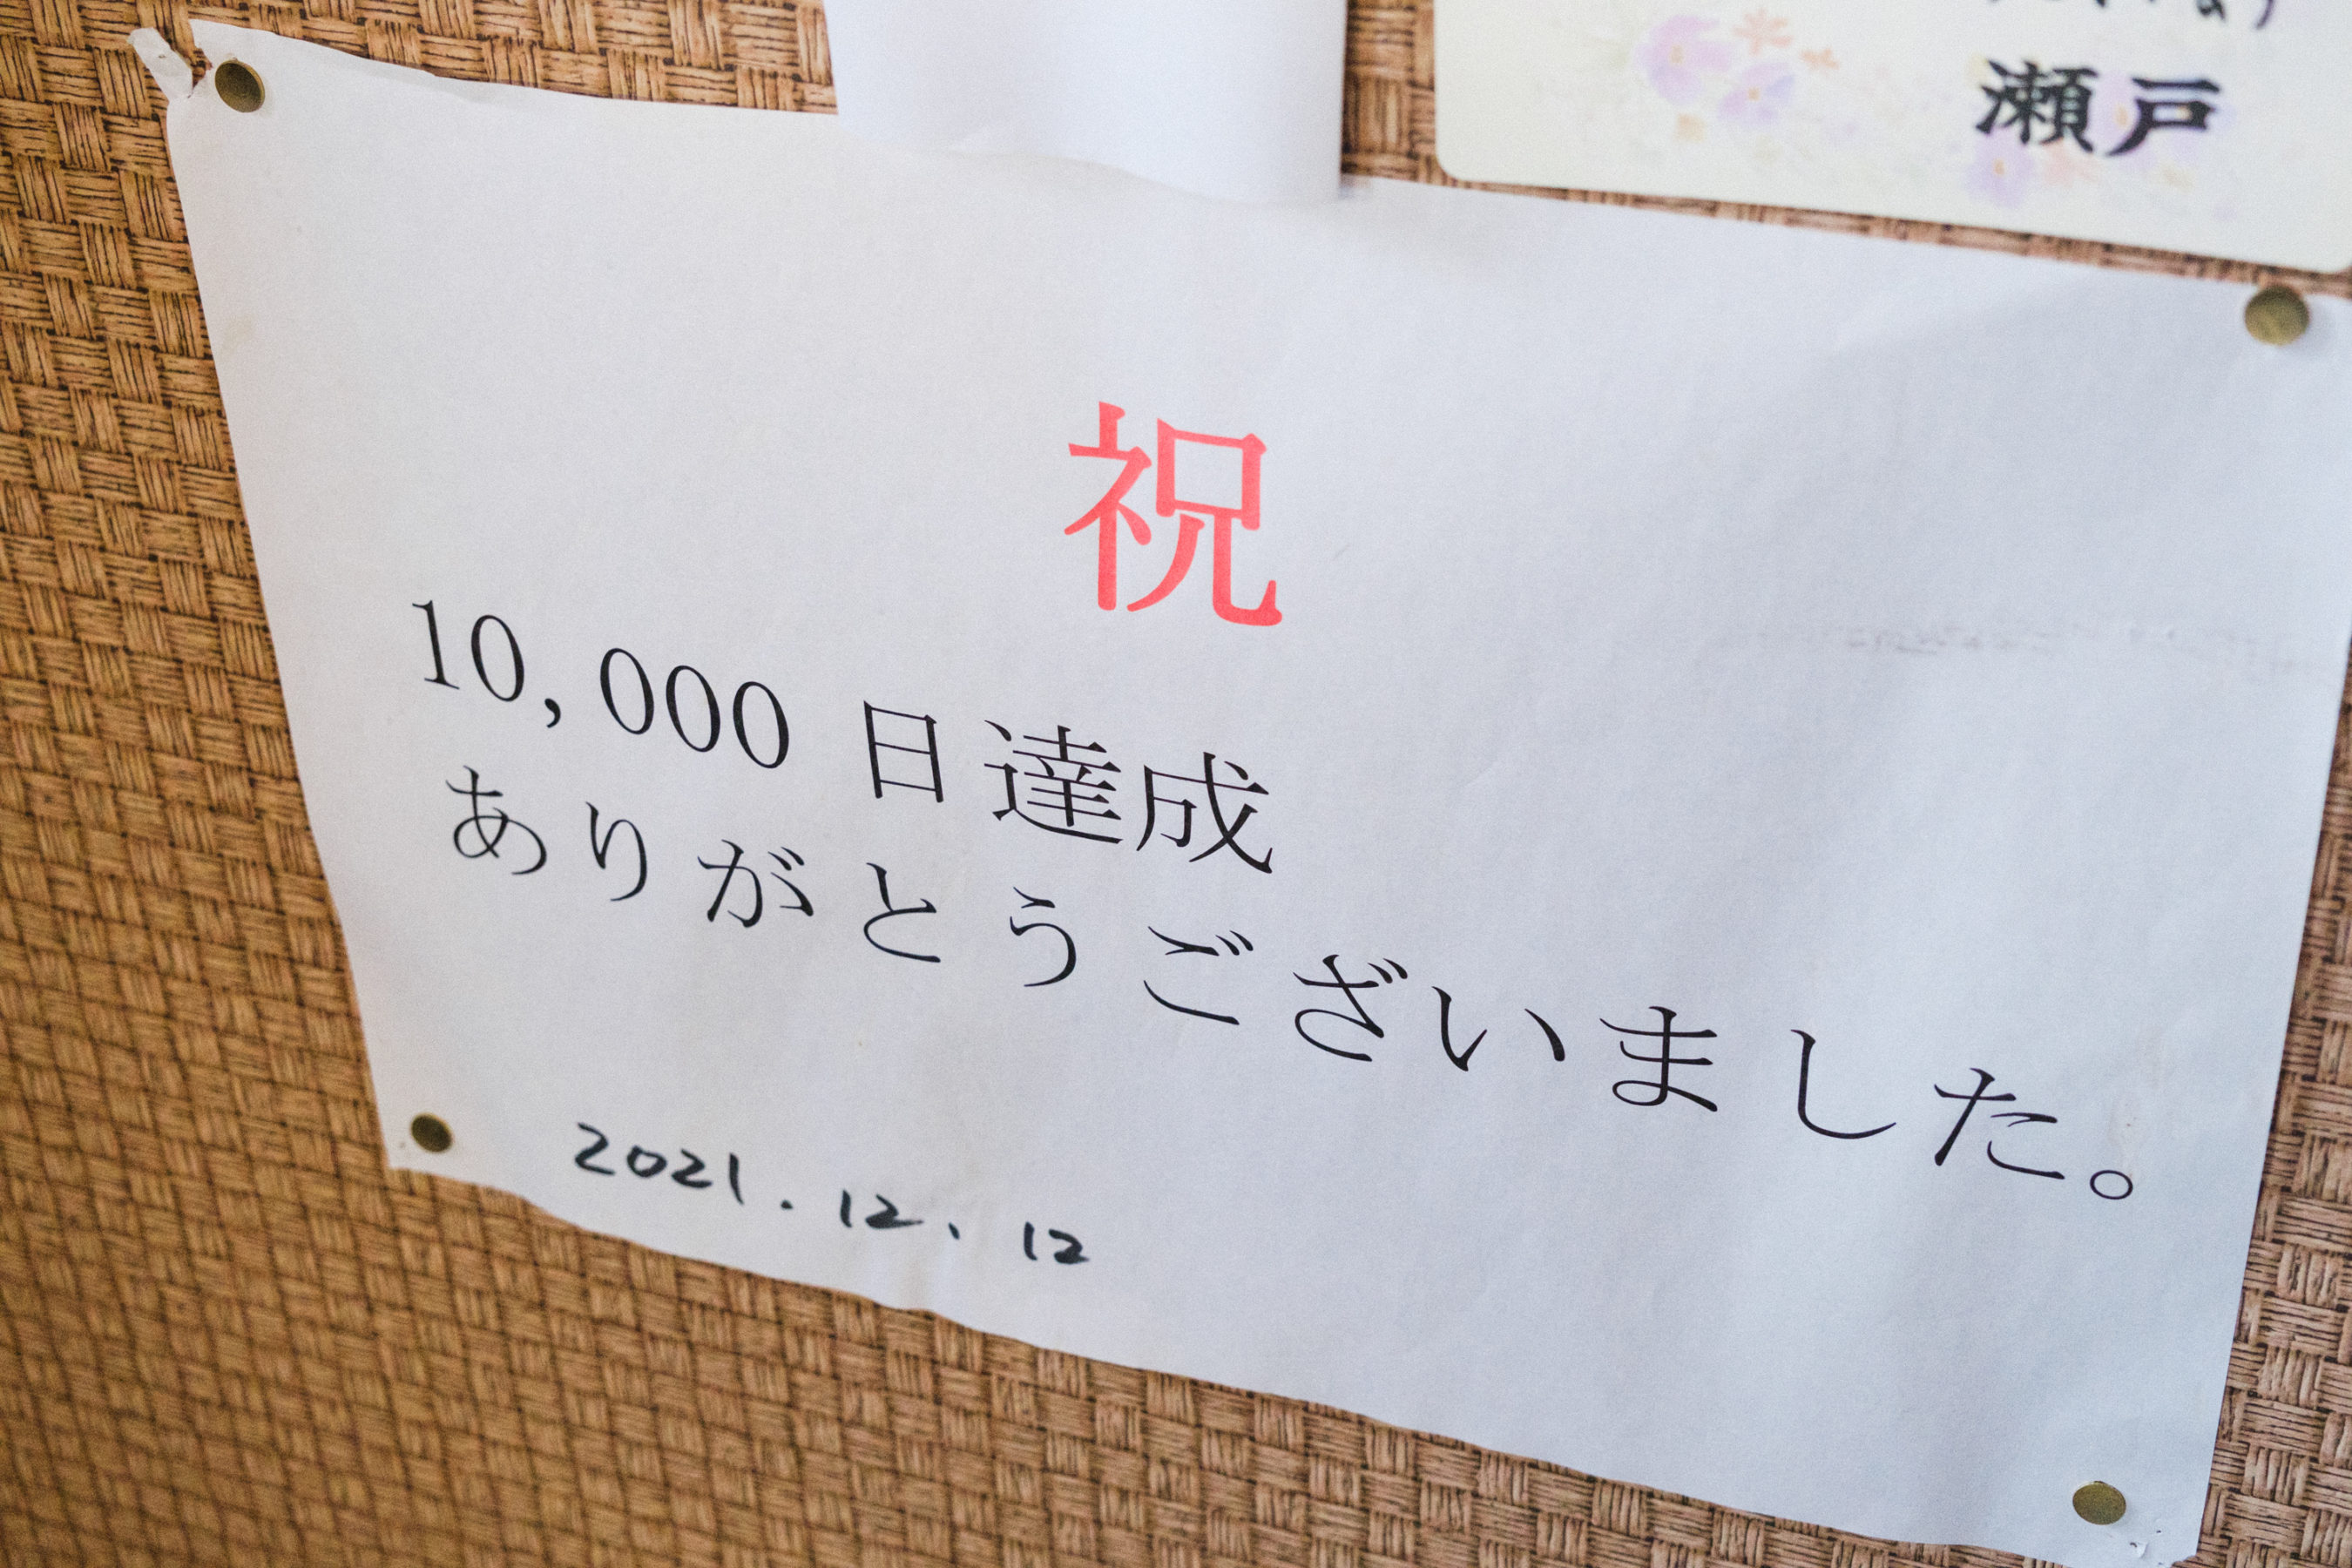 瀬戸
祝
10,000 日達成
ありがとうございました。
2021.12.12